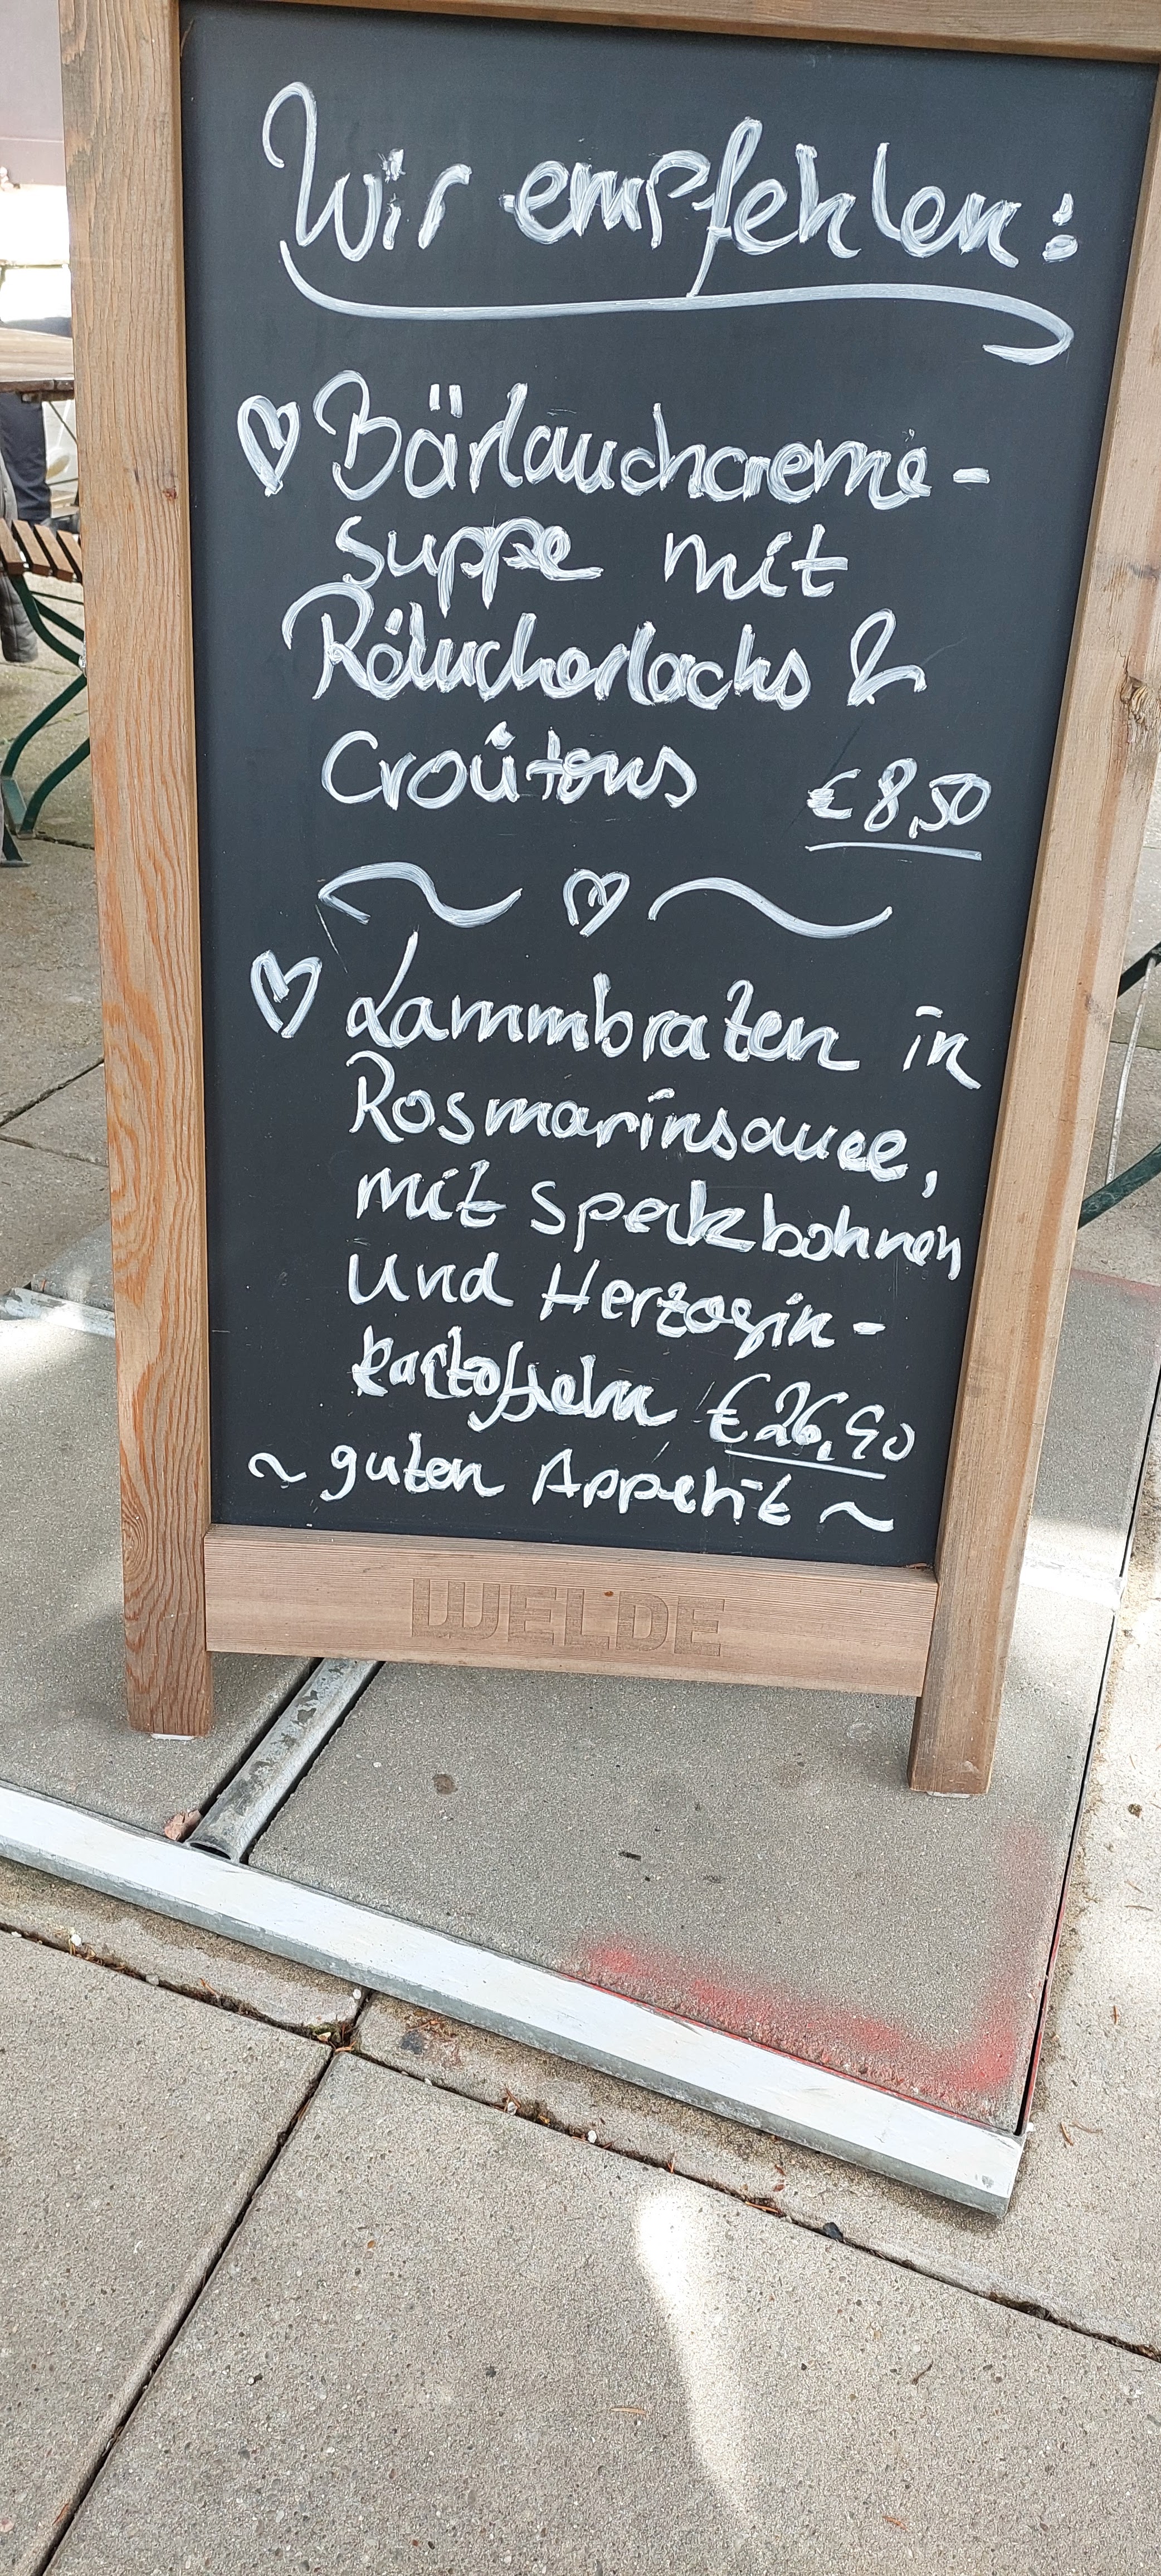 Wir empfehlen:
Bärlauchcreme-
suppe mit
Räucherlachs &
Croûtons €8,50
Lammbraten in
Rosmarinsauce,
mit Speckbohnen
und Herzogin-
kartoffeln €26,90
~ guten Appetit ~
WELDE